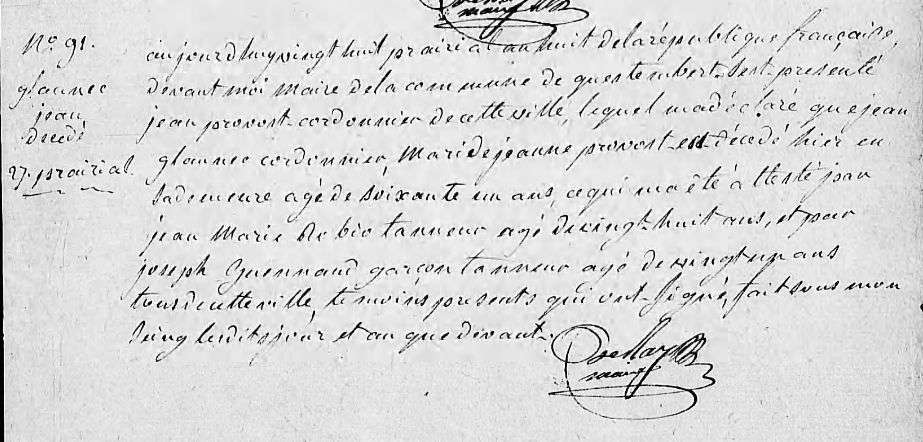 maire
N.o 91.
glaunec
jean
decedé
27. prairial
aujourd'huy vingt huit prairial an huit de la république française,
devant moi maire de la commune de questembert s'est présenté
jean provost cordonnier de cette ville, lequel m'a déclaré que jean
glaunec cordonnier, Mari de jeanne provost est décedé hier en
sa demeure agé de soixante un ans, ce qui m'a été attesté par
jean Marie tanneur agé de vingt huit ans, et par
joseph garçon tanneur agé de vingt un ans
tous de cette ville, temoins presents qui ont signé, fait sous mon
seing lesdits jour et an que devant.
maire